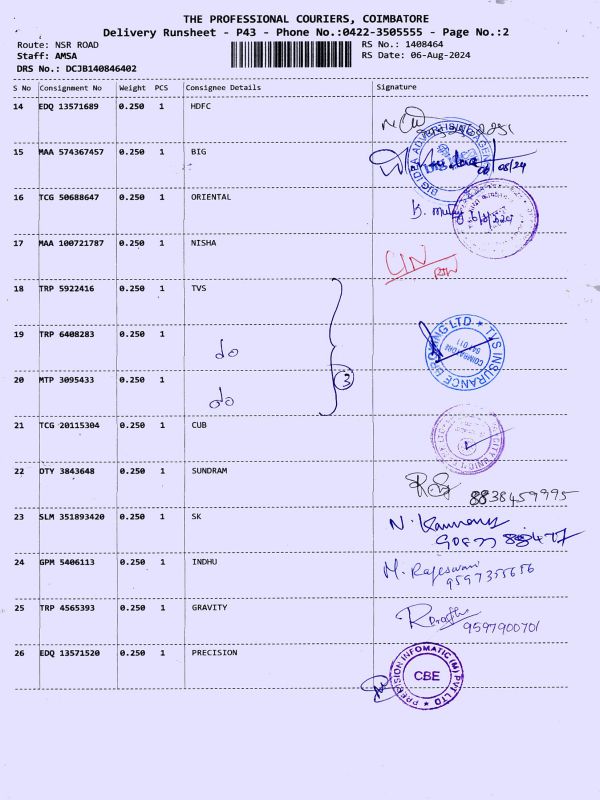 THE PROFESSIONAL COURIERS, COIMBATORE
Delivery Runsheet - P43 - Phone No.:0422-3505555 - Page No.:2
Route: NSR ROAD RS No.: 1408464
Staff: AMSA RS Date: 06-Aug-2024
DRS No.: DCJB140846402
S No Consignment No Weight PCS Consignee Details Signature
14 EDQ 13571689 0.250 1 HDFC
15 MAA 574367457 0.250 1 BIG
BIG IDEA ADVERTISING AGENCY
06/08/24
16 TCG 50688647 0.250 1 ORIENTAL
17 MAA 100721787 0.250 1 NISHA
18 TRP 5922416 0.250 1 TVS
19 TRP 6408283 0.250 1
do
TVS INSURANCE BROKING LTD
COIMBATORE
641 011
20 MTP 3095433 0.250 1
do
3
21 TCG 20115304 0.250 1 CUB
22 DTY 3843648 0.250 1 SUNDRAM
8838459995
23 SLM 351893420 0.250 1 SK
24 GPM 5406113 0.250 1 INDHU
M. Rajeswari
9597355656
25 TRP 4565393 0.250 1 GRAVITY
9597900701
26 EDQ 13571520 0.250 1 PRECISION
PRECISION INFOMATIC (M) PVT LTD
CBE